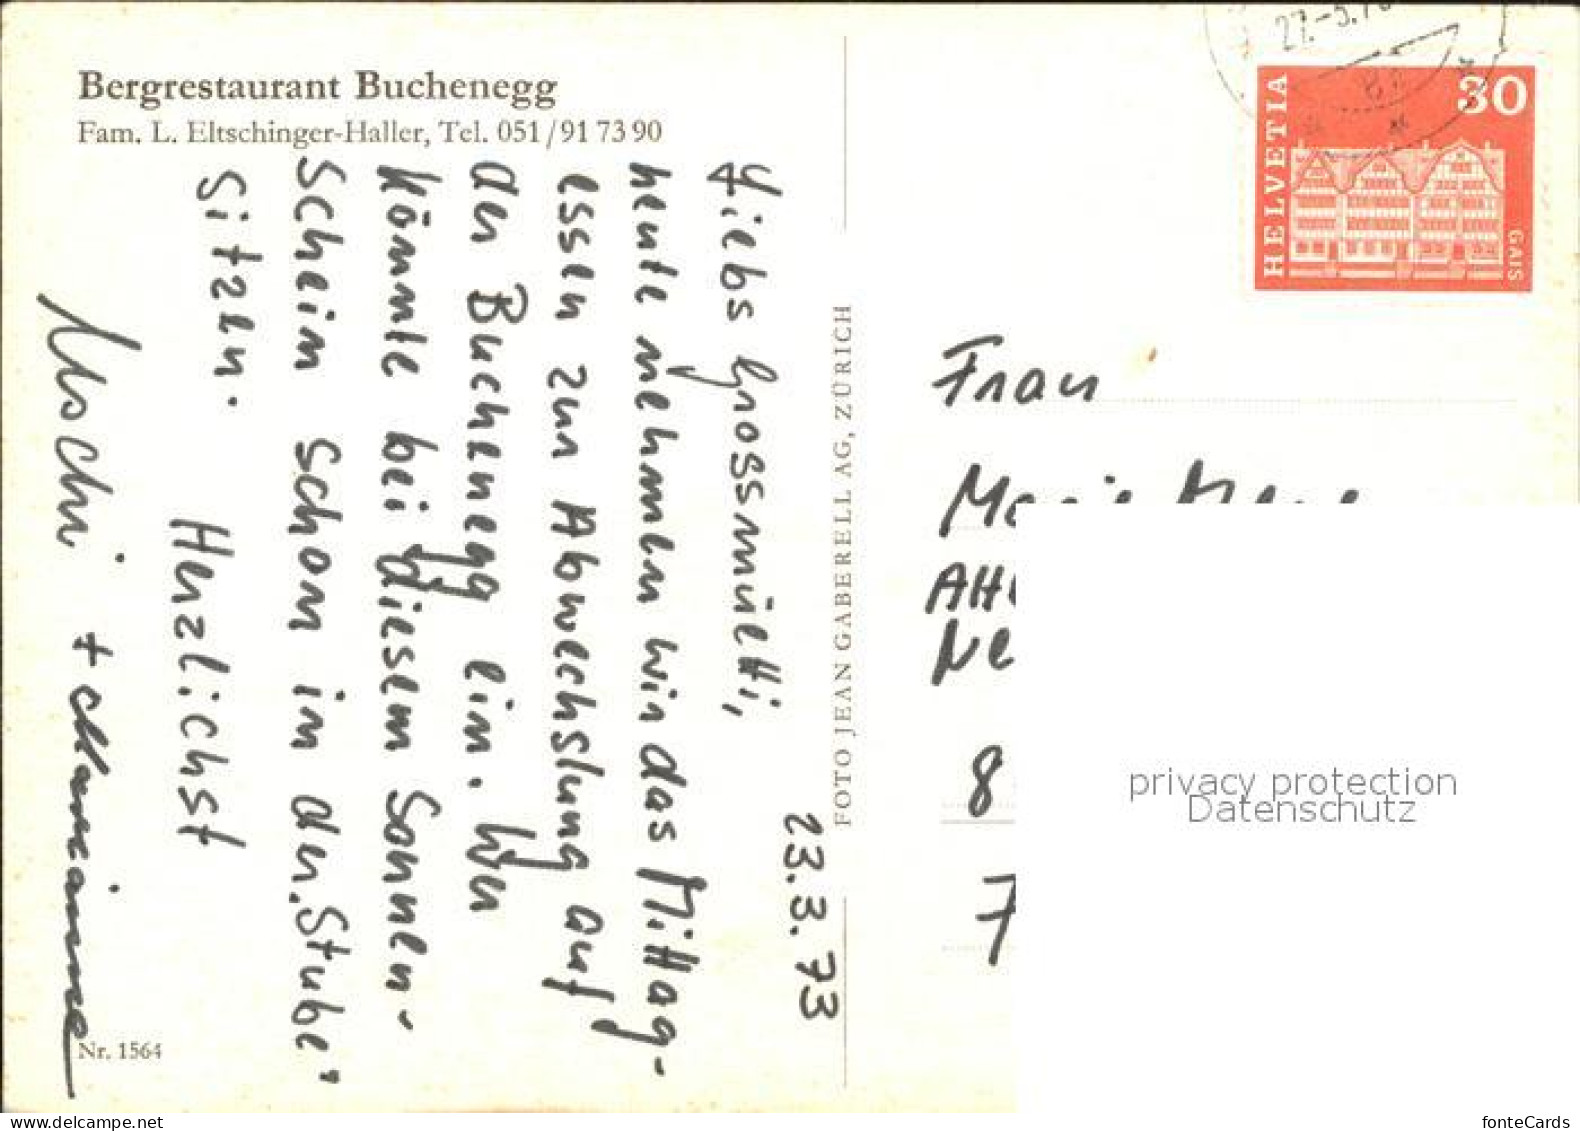 Bergrestaurant Buchenegg
Fam. L. Eltschinger-Haller, Tel. 051/91 73 90
23.3.73
Liebs Grossmüetti,
heute nehmen wir das Mittag-
essen zur Abwechslung auf
der Buchenegg ein. Wer
könnte bei diesem Sonnen-
schein schon in der „Stube"
sitzen.
Herzlichst
+ Marianne
Nr. 1564
FOTO JEAN GABERELL AG, ZÜRICH
27.-3.7
HELVETIA
30
GAIS
Frau
8
7
privacy protection
Datenschutz
www.delcampe.net
fonteCards